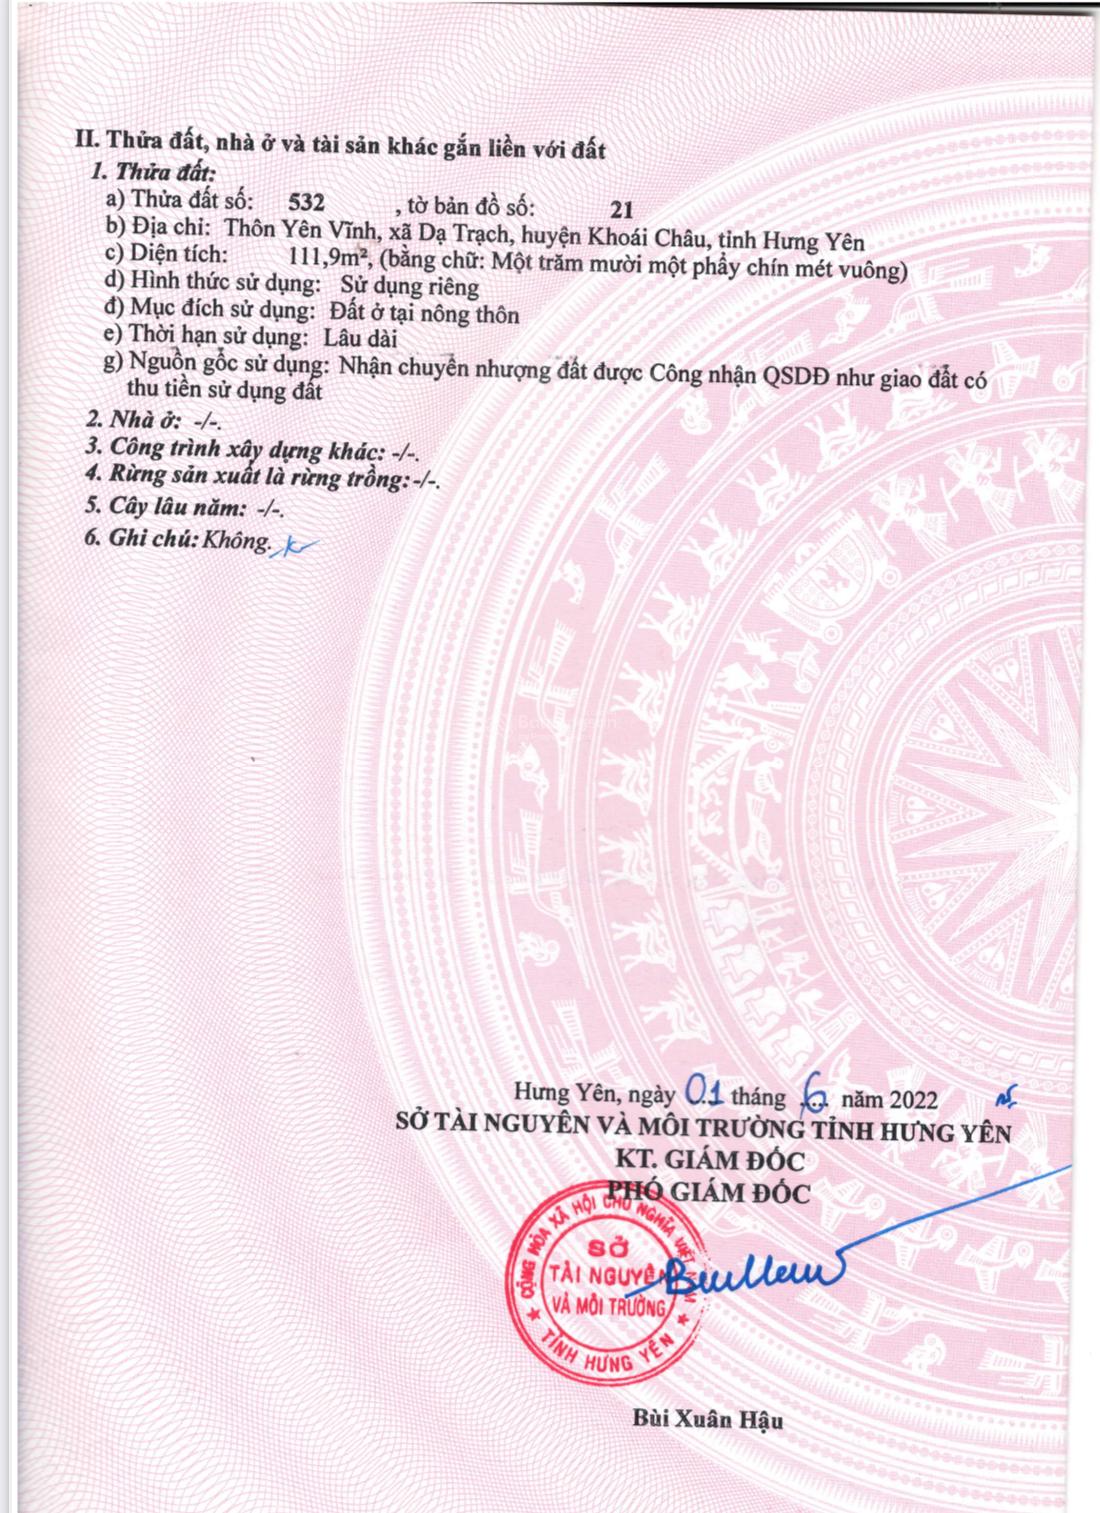 II. Thửa đất, nhà ở và tài sản khác gắn liền với đất
1. Thửa đất:
a) Thửa đất số: 532 , tờ bản đồ số: 21
b) Địa chỉ: Thôn Yên Vĩnh, xã Dạ Trạch, huyện Khoái Châu, tỉnh Hưng Yên
c) Diện tích: 111,9m², (bằng chữ: Một trăm mười một phẩy chín mét vuông)
d) Hình thức sử dụng: Sử dụng riêng
đ) Mục đích sử dụng: Đất ở tại nông thôn
e) Thời hạn sử dụng: Lâu dài
g) Nguồn gốc sử dụng: Nhận chuyển nhượng đất được Công nhận QSDĐ như giao đất có
thu tiền sử dụng đất
2. Nhà ở: -/-.
3. Công trình xây dựng khác: -/-.
4. Rừng sản xuất là rừng trồng: -/-.
5. Cây lâu năm: -/-.
6. Ghi chú: Không.
Hưng Yên, ngày 01 tháng 6 năm 2022
SỞ TÀI NGUYÊN VÀ MÔI TRƯỜNG TỈNH HƯNG YÊN
KT. GIÁM ĐỐC
PHÓ GIÁM ĐỐC
CỘNG HÒA XÃ HỘI CHỦ NGHĨA VIỆT NAM
SỞ
TÀI NGUYÊN
VÀ MÔI TRƯỜNG
TỈNH HƯNG YÊN
Bùi Xuân Hậu